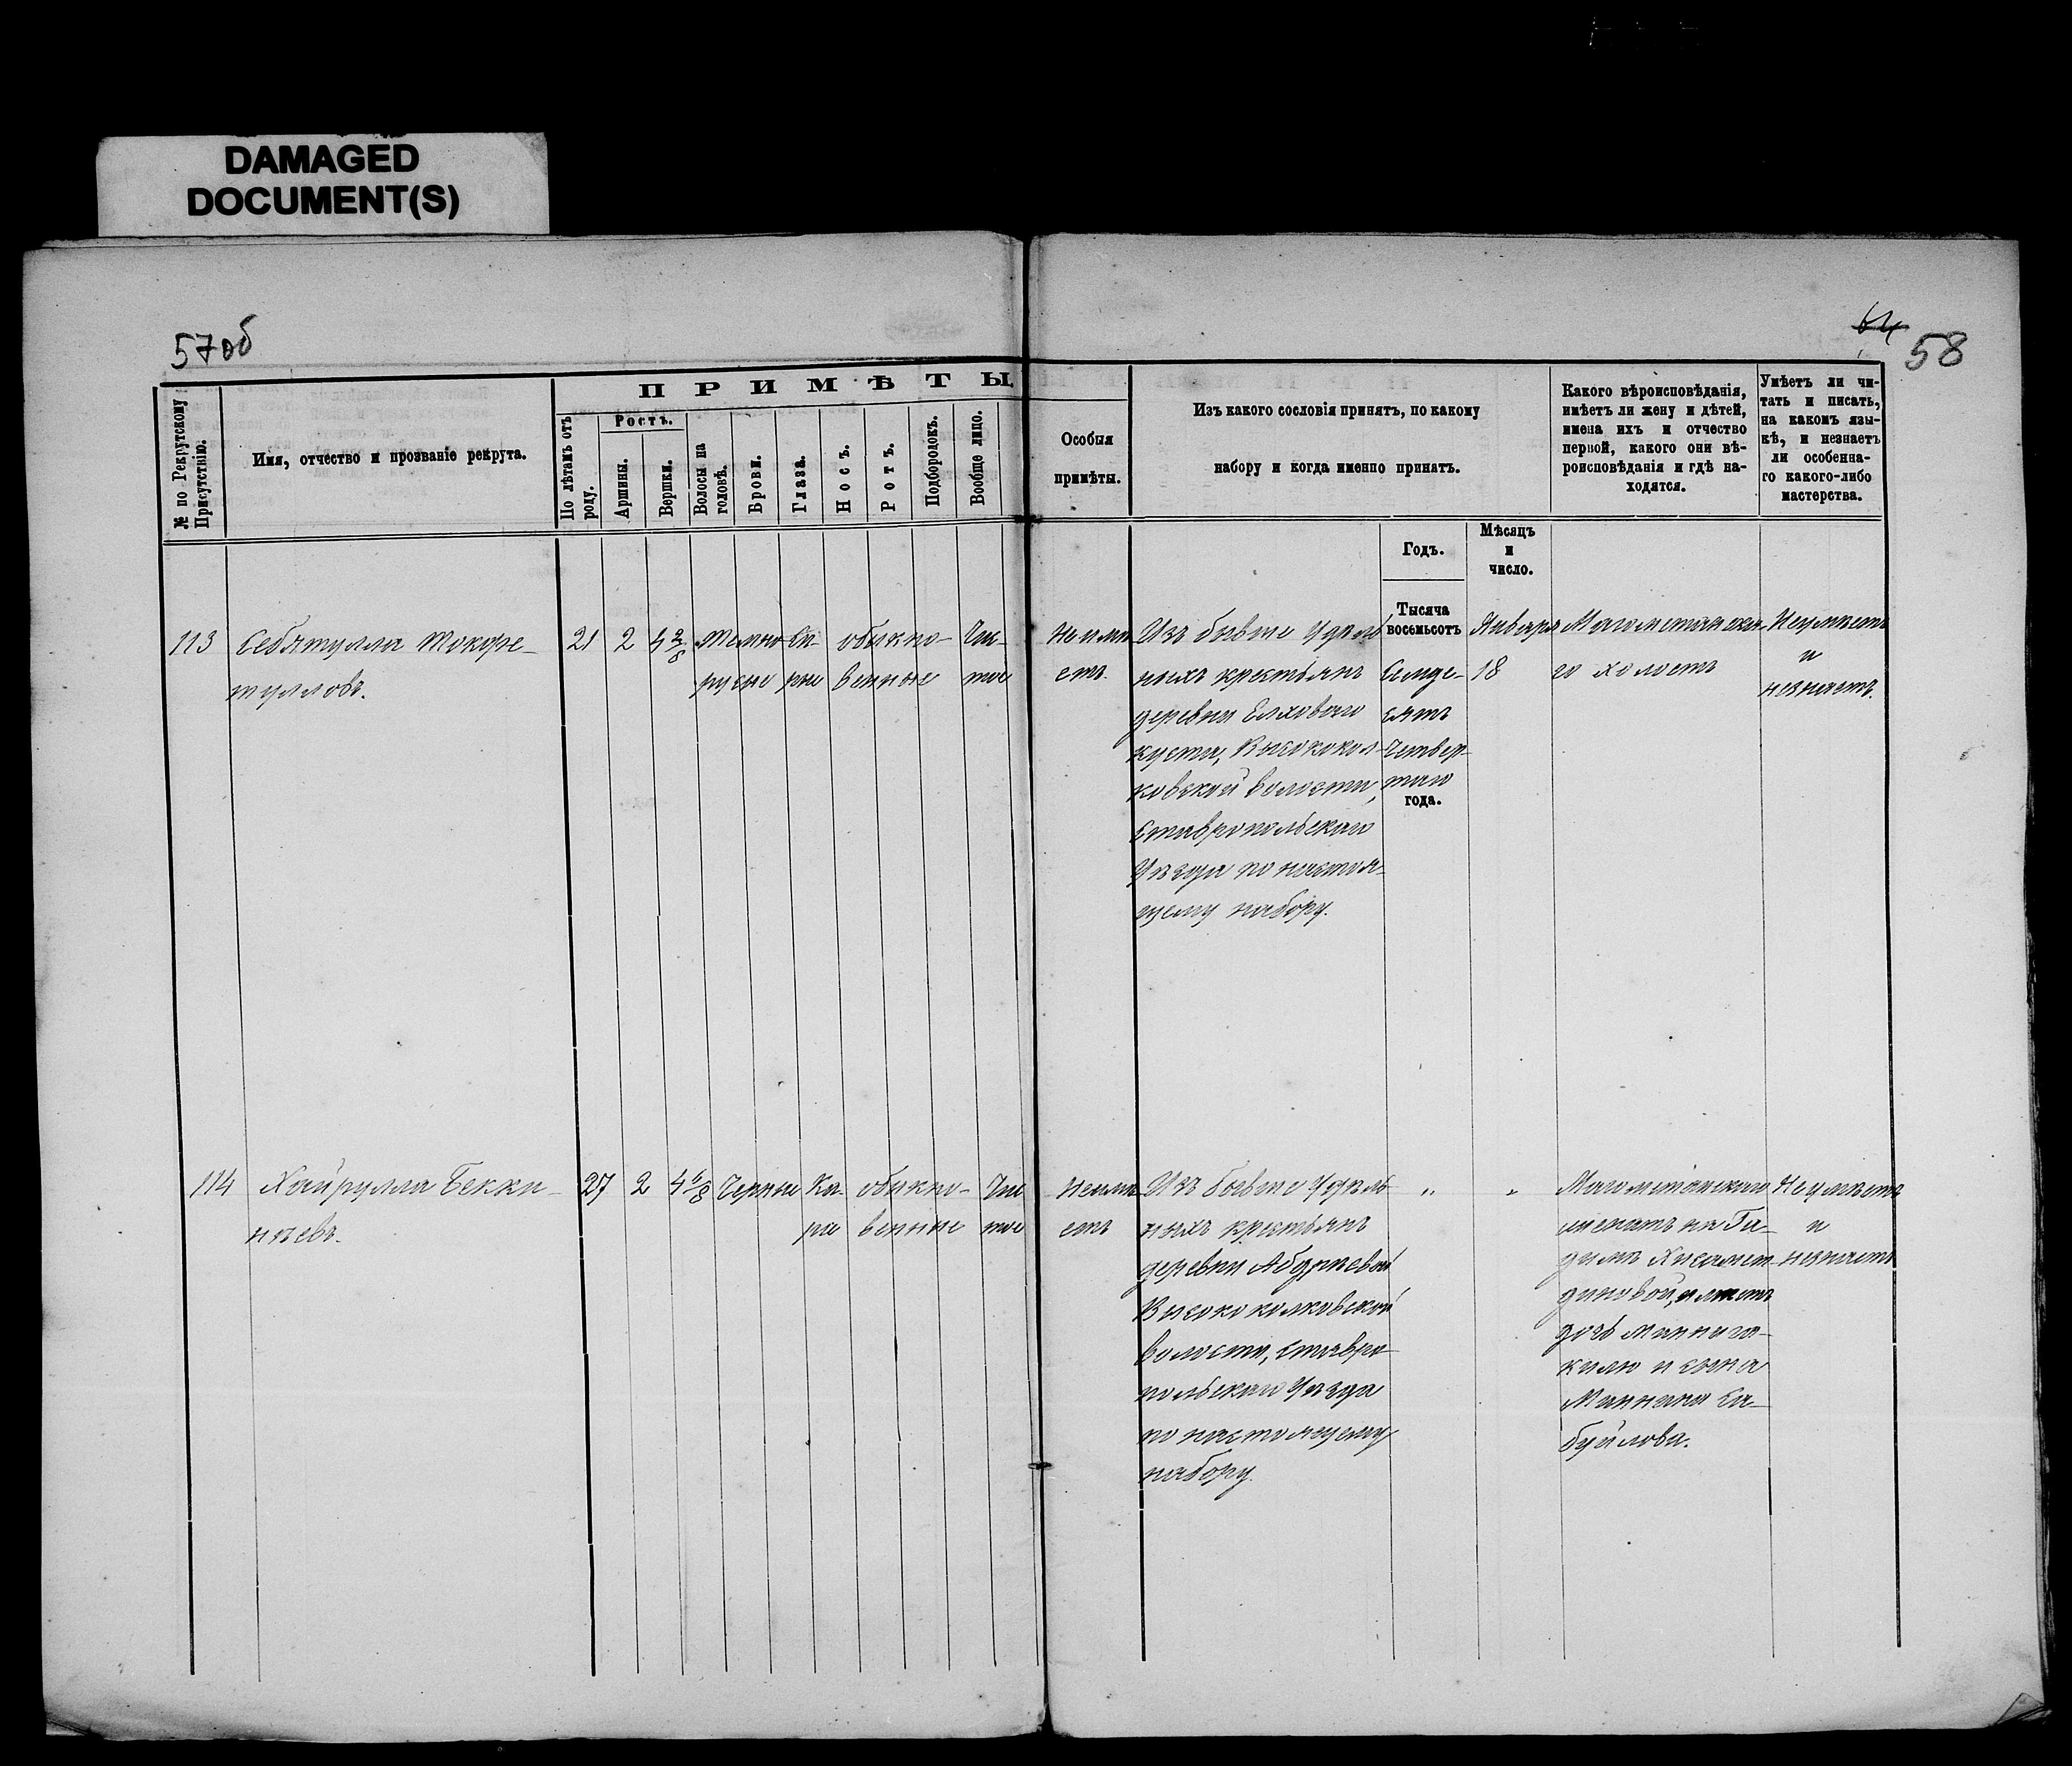 DAMAGED
DOCUMENT(S)
57об
64
58
№ по Рекрутскому
Присутствію.
Имя, отчество и прозваніе рекрута.
ПРИМѢТЫ.
По лѣтамъ отъ
роду.
Ростъ.
Аршины.
Вершки.
Волосы на
головѣ.
Брови.
Глаза.
Носъ.
Ротъ.
Подбородокъ.
Вообще лицо.
Особыя
примѣты.
Изъ какого сословія принятъ, по какому
набору и когда именно принятъ.
Какого вѣроисповѣданія,
имѣетъ ли жену и дѣтей,
имена ихъ и отчество
первой, какого они вѣ-
роисповѣданія и гдѣ на-
ходятся.
Умѣетъ ли чи-
тать и писать,
на какомъ язы-
кѣ, и незнаетъ
ли особенна-
го какого-либо
мастерства.
Годъ.
Мѣсяцъ
и
число.
113
Себятулла Токфе-
тулловъ.
21
2
4 2/8
Темно-
русые
Сѣ-
рые
обыкно-
венные
Чис-
тое
Неимѣ
етъ.
Изъ бывше Удѣль
ныхъ крестьянъ
деревни Елховаго
куста, Высококол-
ковской волости,
Ставропольскаго
Уѣзда по настоя-
щему набору.
Тысяча
восемьсотъ
Семде-
сятъ
Четвер-
таго
года.
Января
18
Магометанска-
го холостъ
Неумѣетъ
и
незнаетъ.
114
Хайрулла Бекки-
нѣевъ.
27
2
4 6/8
Черные
Ка-
рие
обыкно-
венные
Чис
тое
Неимѣ
етъ
Изъ бывше Удѣль
ныхъ крестьянъ
деревни Абдрѣевой
Высококолковской
волости, Ставро-
польскаго Уѣзда
по настоящему
набору.
"
"
Магометанскаго
женатъ на Га-
Хисамет-
диновой, имѣетъ
дочь
и сына
Маннана Га-
буйлова.
Неумѣетъ
и
незнаетъ